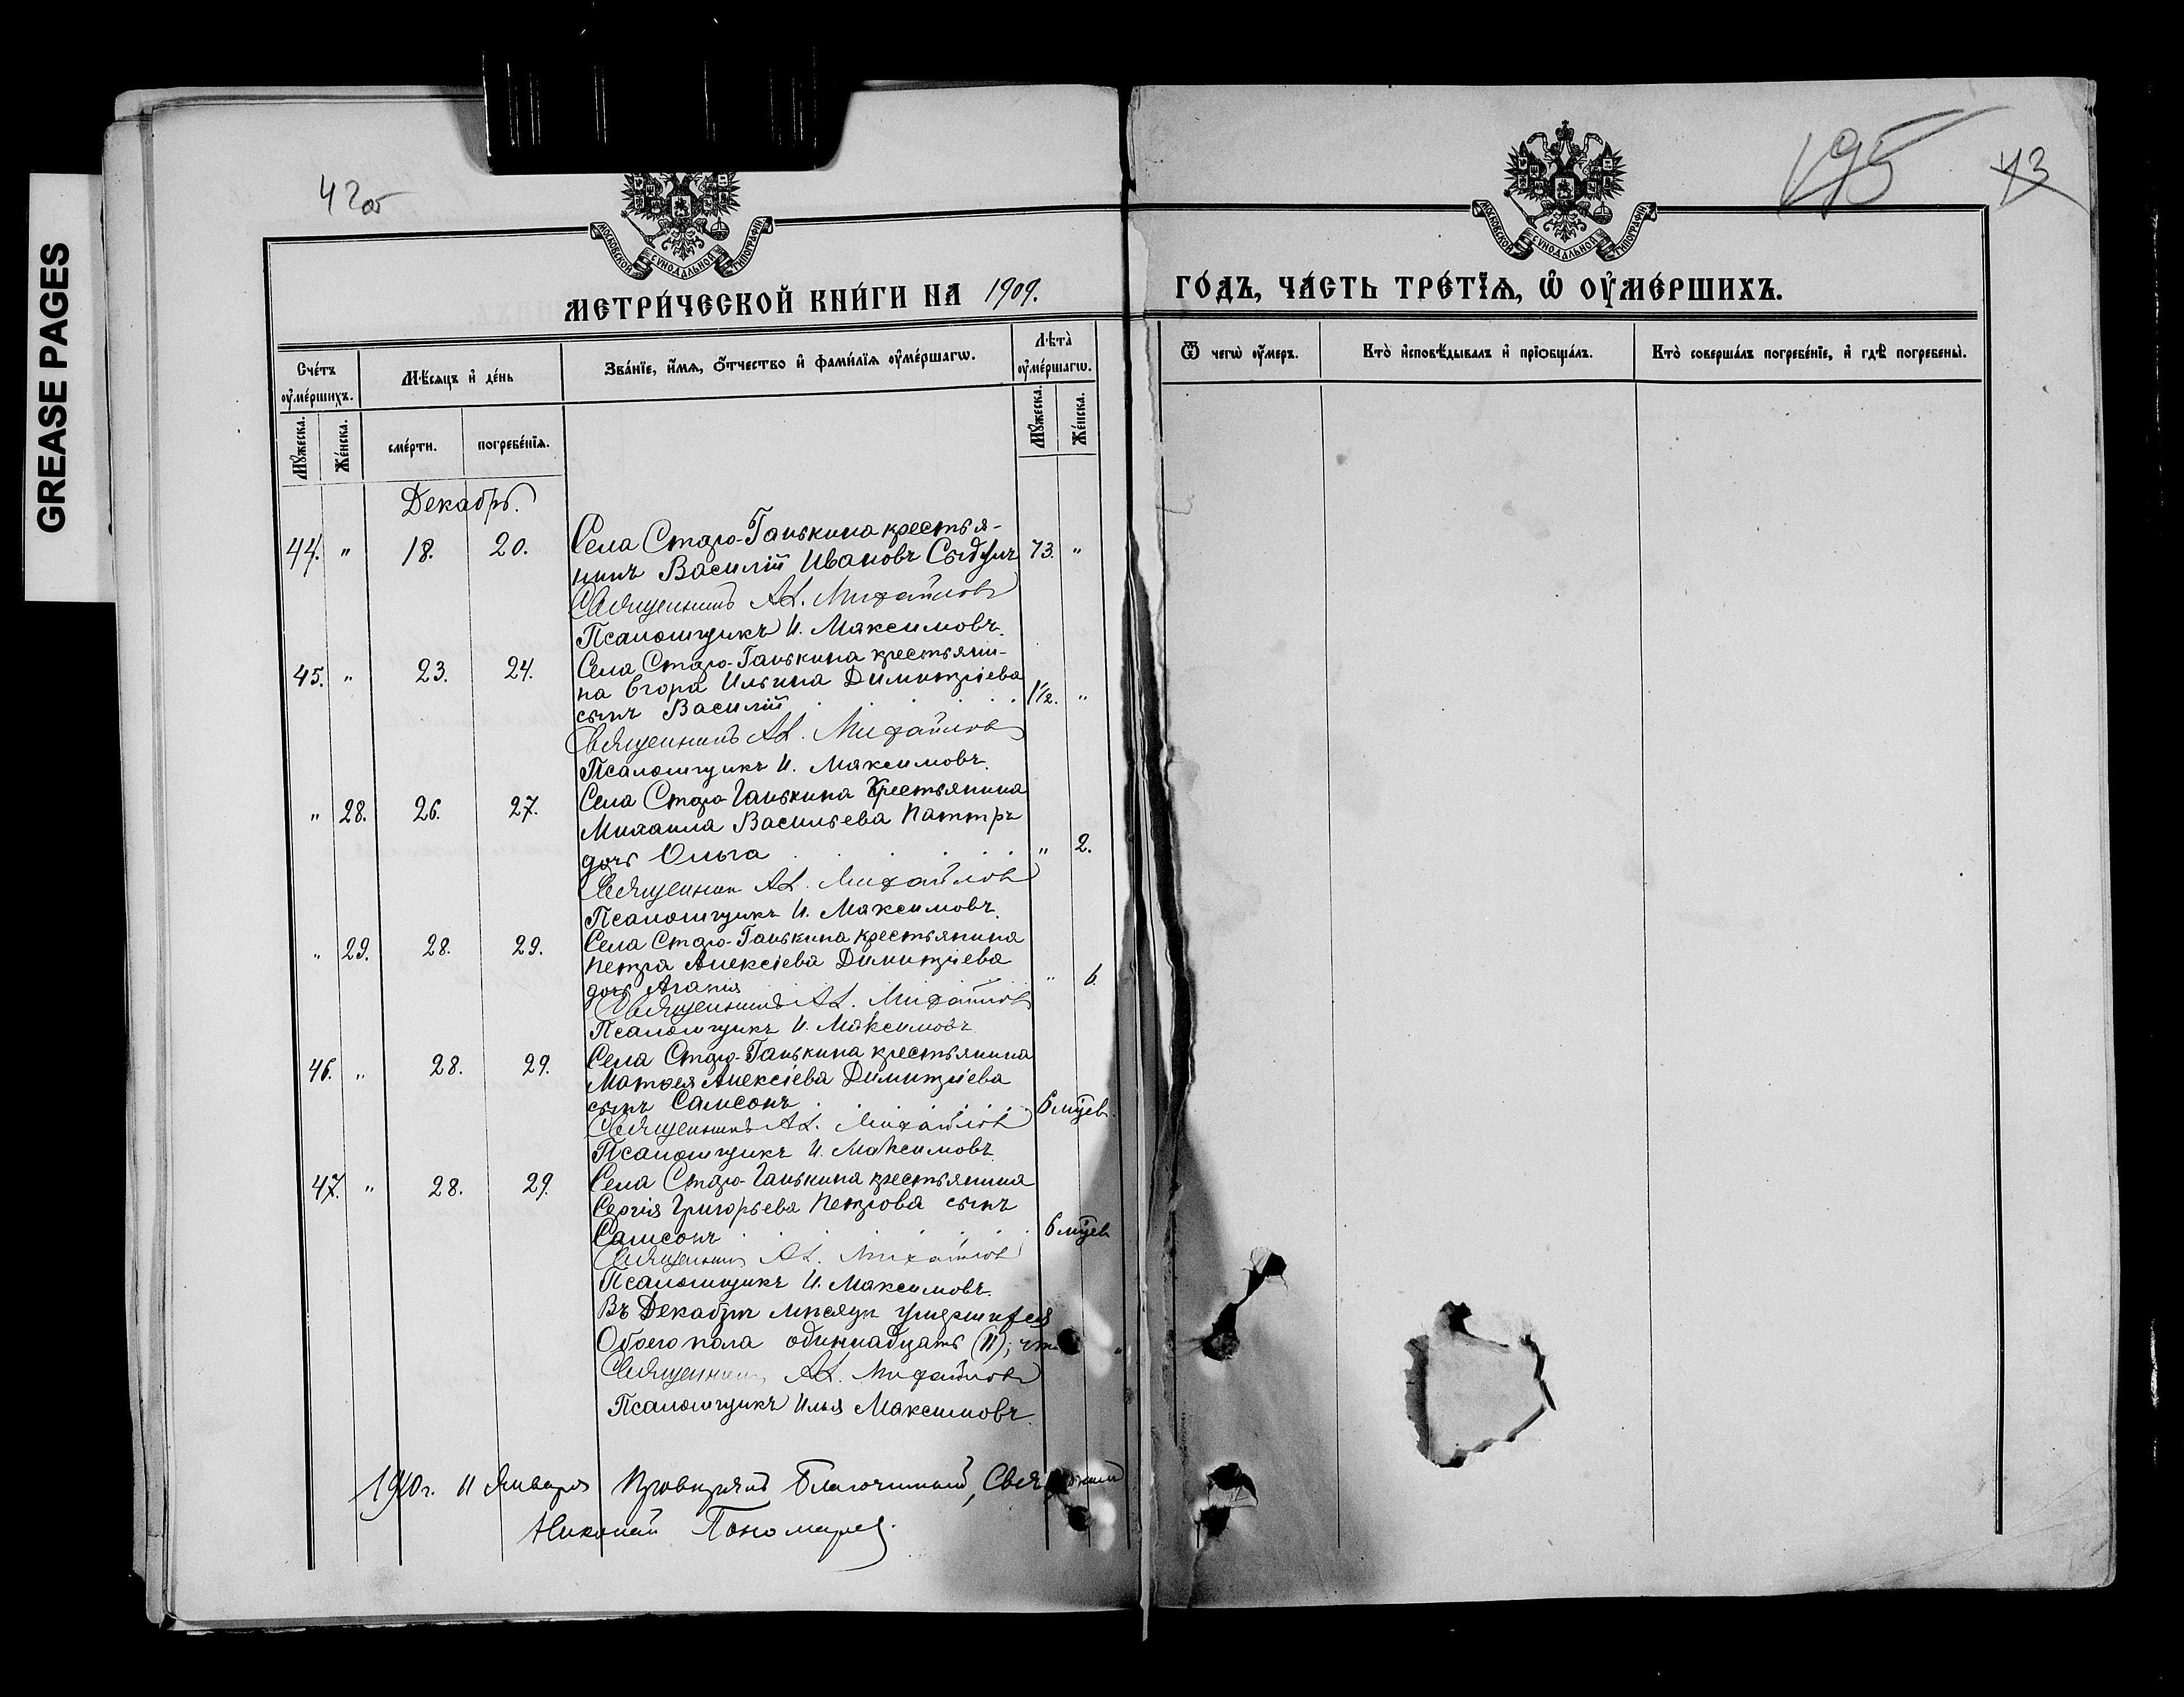 GREASE PAGES
42 об
195
43
МОСКОВСКОЙ СѴНОДАЛЬНОЙ ТИПОГРАФІИ
МОСКОВСКОЙ СѴНОДАЛЬНОЙ ТИПОГРАФІИ
МЕТРИ́ЧЕСКОЙ КНИ́ГИ НА 1909. ГО́ДЪ, ЧА́СТЬ ТРЕ́ТЇѦ, Ѽ ОУ҆МЕ́РШИХЪ.
Сче́тъ оу҆ме́ршихъ.
Мѣ́сѧцъ и҆ де́нь
Зва́нїе, и҆́мѧ, ѻ҆́тчество и҆ фами́лїѧ оу҆ме́ршагѡ.
Лѣ̀та оу҆ме́ршагѡ.
Ѿ чегѡ̀ оу҆́меръ.
Кто̀ и҆сповѣ́дывалъ и҆ прїѡбща́лъ.
Кто̀ соверша́лъ погребе́нїе, и҆ гдѣ̀ погребены̀.
Мꙋ́жеска.
Же́нска.
сме́рти.
погребе́нїѧ.
Мꙋ́жеска.
Же́нска.
Декабрь.
44. " 18. 20. Села Старо-Ганькина крестья-
нинъ Василій Ивановъ 73. "
Священникъ Ал. Михайловъ
Псаломщикъ И. Максимовъ.
45. " 23. 24. Села Старо-Ганькина крестьяни-
на Егора Ильина Димитріева
сынъ Василій 1½. "
Священникъ Ал. Михайловъ
Псаломщикъ И. Максимовъ.
" 28. 26. 27. Села Старо-Ганькина крестьянина
Михаила Васильева
дочь Ольга " 2.
Священник Ал. Михайловъ
Псаломщикъ И. Максимовъ.
" 29. 28. 29. Села Старо-Ганькина крестьянина
Петра Алексіева Димитріева
дочь Агапія " 6.
Священникъ Ал. Михайловъ
Псаломщикъ И. Максимовъ
46. " 28. 29. Села Старо-Ганькина крестьянина
Матѳея Алексіева Димитріева
сынъ Самсонъ 6 мцев.
Священникъ Ал. Михайловъ
Псаломщикъ И. Максимовъ.
47. " 28. 29. Села Старо-Ганькина крестьянина
Сергія Григорьева Петрова сынъ
Самсонъ 6 мцев
Священникъ Ал. Михайловъ
Псаломщикъ И. Максимовъ.
Въ Декабрѣ мѣсяцѣ умершихся
Обоего пола одиннадцать (11);
Священникъ Ал. Михайловъ
Псаломщикъ Илья Максимовъ.
1910 г. 11 Января Провѣрялъ Благочинный,
Николай Пономарев